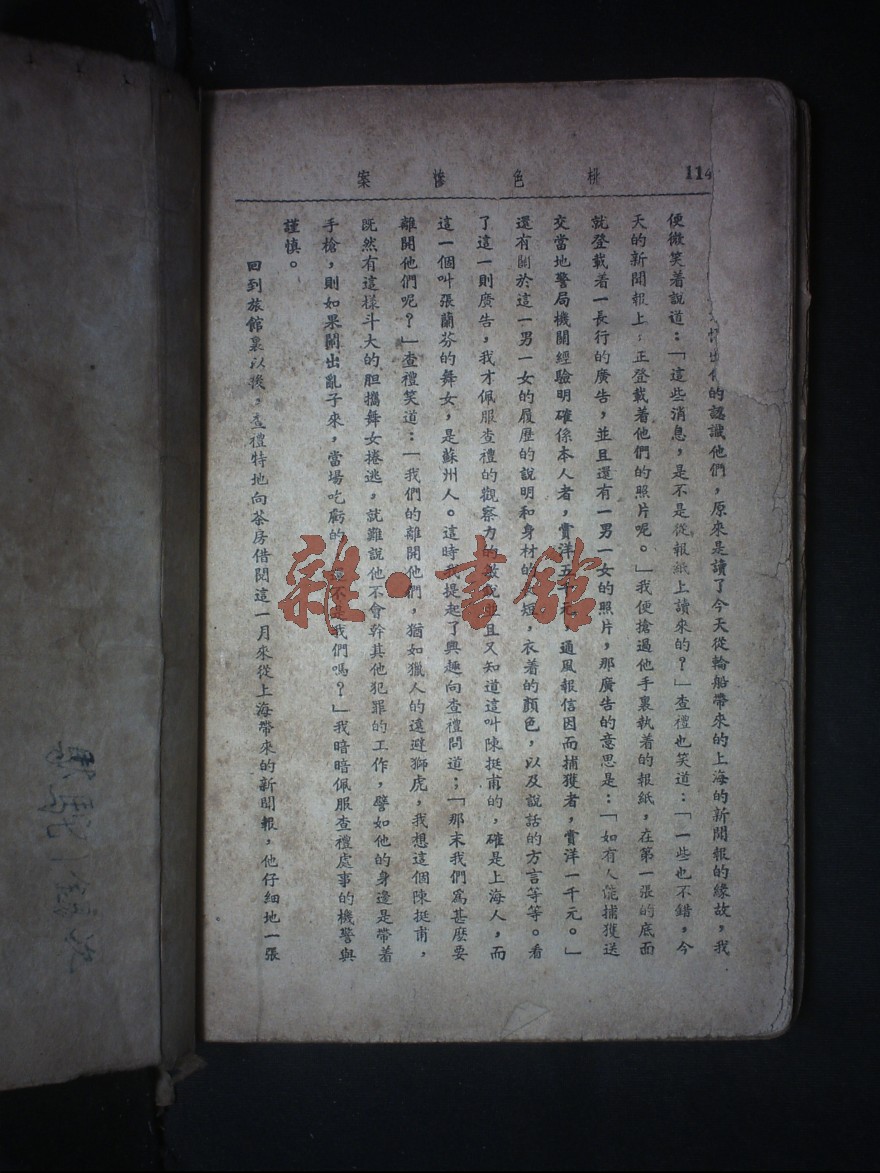 114
桃色慘案
的認識他們，原來是讀了今天從輪船帶來的上海的新聞報的緣故，我
便微笑着說道：「這些消息，是不是從報紙上讀來的？」查禮也笑道：「一些也不錯，今
天的新聞報上，正登載着他們的照片呢。」我便搶過他手裏執着的報紙，在第一張的底面
就登載着一長行的廣告，並且還有一男一女的照片，那廣告的意思是：「如有人能捕獲送
交當地警局機關經驗明確係本人者，賞洋五千元，通風報信因而捕獲者，賞洋一千元。」
還有關於這一男一女的履歷的說明和身材的短，衣着的顏色，以及說話的方言等等。看
了這一則廣告，我才佩服查禮的觀察力的敏且又知道這叫陳挺甫的，確是上海人，而
這一個叫張蘭芬的舞女，是蘇州人。這時我提起了興趣向查禮問道；「那末我們爲甚麼要
離開他們呢？」查禮笑道：「我們的離開他們，猶如獵人的遠避獅虎，我想這個陳挺甫，
旣然有這樣斗大的胆攜舞女捲逃，就難說他不會幹其他犯罪的工作，譬如他的身邊是帶着
手槍，則如果鬧出亂子來，當場吃虧的不是我們嗎？」我暗暗佩服查禮處事的機警與
謹慎。
回到旅館裏以後，查禮特地向茶房借閱這一月來從上海帶來的新聞報，他仔細地一張
雜·書館